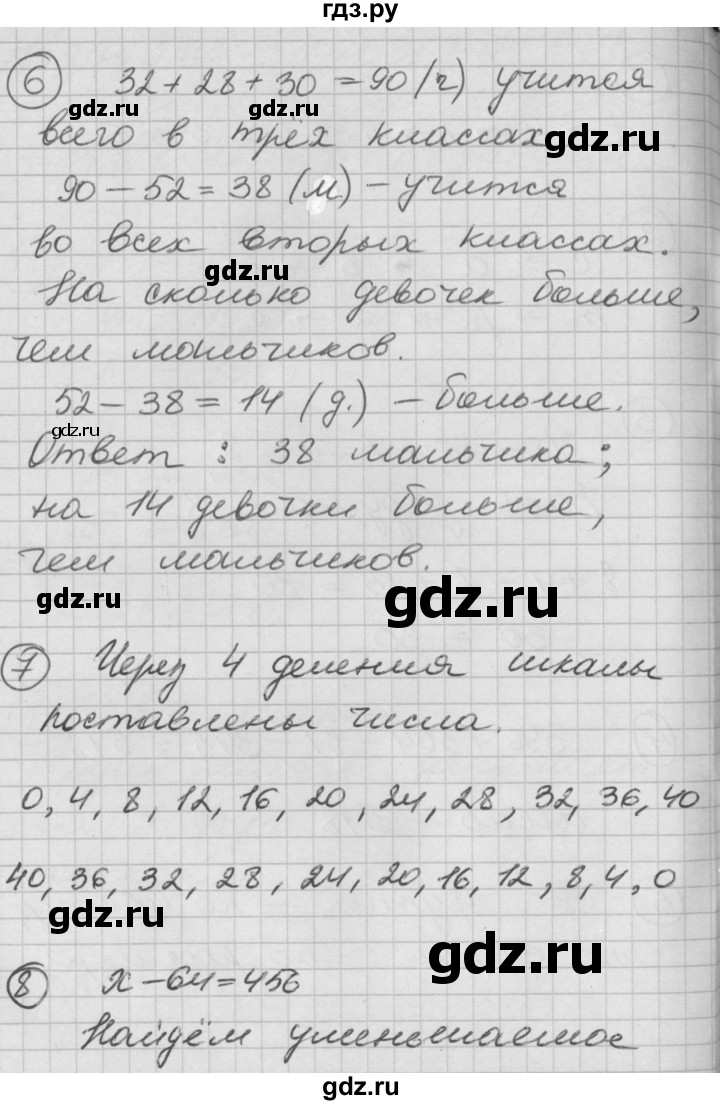 гдз.ру
6 32 + 28 + 30 = 90 (ч) учится
gdz.ru gdz.ru
всего в трёх классах
gdz.ru
90 - 52 = 38 (м) - учится
во всех вторых классах.
gdz.ru
На сколько девочек больше,
чем мальчиков.
52 - 38 = 14 (д.) - больше.
gdz.ru
Ответ : 38 мальчика;
на 14 девочки больше,
чем мальчиков.
gdz.ru gdz.ru
7 Через 4 деления шкалы
поставлены числа.
0, 4, 8, 12, 16, 20, 24, 28, 32, 36, 40
40, 36, 32, 28, 24, 20, 16, 12, 8, 4, 0
gdz.ru gdz.ru
8 х - 64 = 456
Найдём уменьшаемое
gdz.ru